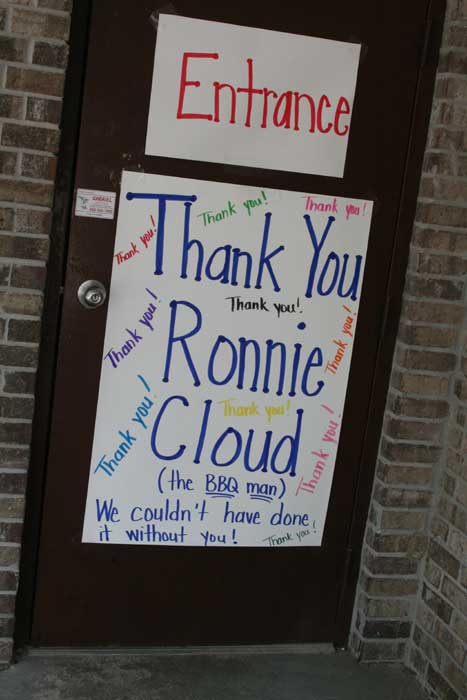 Entrance
Thank you!
Thank you!
Thank you!
Thank You
Thank you!
Thank you!
Thank you!
Ronnie
Thank you!
Cloud
Thank you!
Thank you!
(the BBQ man)
We couldn't have done
it without you!
Thank you!